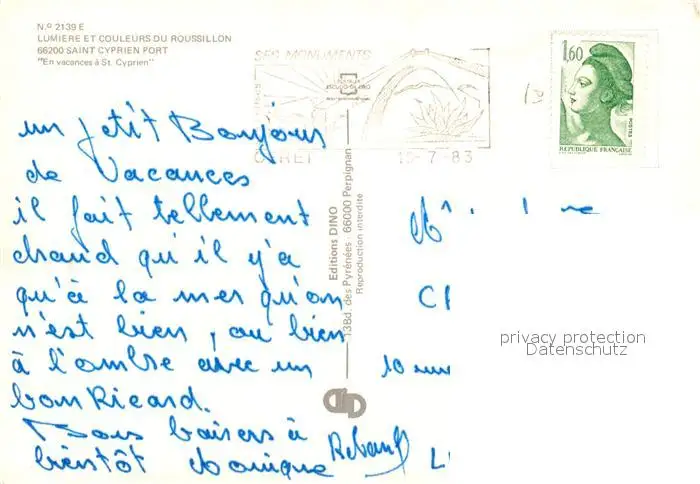 N.º 2139 E
LUMIERE ET COULEURS DU ROUSSILLON
66200 SAINT CYPRIEN PORT
"En vacances à St. Cyprien"
SES MONUMENTS
CERET
10-7-83
1,60
POSTES
REPUBLIQUE FRANÇAISE
un petit Bonjour
de Vacances
il fait tellement
chaud qu'il y'a
qu'à la mer qu'on
n'est bien, ou bien
à l'ombre avec un
bon Ricard.
Bons baisers à
bientôt Monique
Editions DINO
13Bd. des Pyrénées 66000 Perpignan
Reproduction interdite
privacy protection
Datenschutz
10